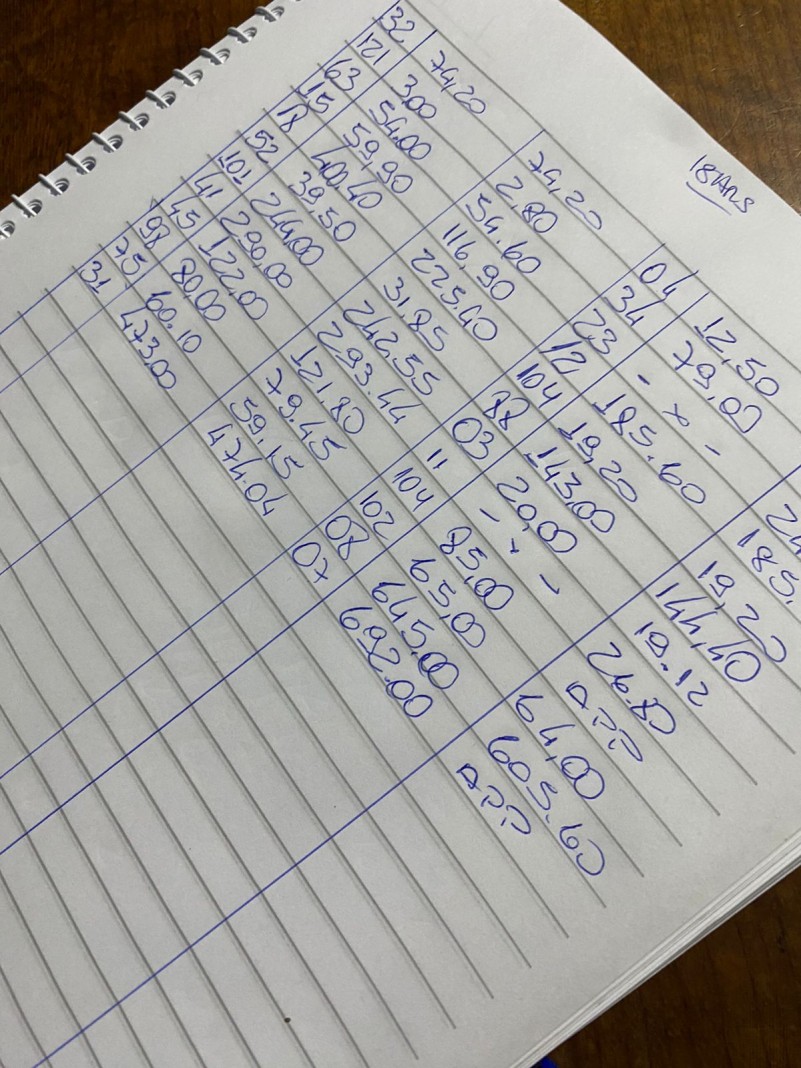 18 ANS
32 74,20 74,20 04 12,50
121 3,00 2,80 34 79,00
63 54.00 54.60 23 - x -
15 59,90 116,90 12 185.60 185.
18 400,40 225.40 104 19,20 19,20
52 39,50 31,85 88 143,00 144,40
101 244,00 242.55 03 20,00 19.12
41 290,00 293.44 11 - x - 26.80
45 122,00 121,80 104 85,00 APP
98 80,00 79.45 102 65,00 64,00
75 60.10 59.15 08 645,00 605.60
31 473,00 474.04 07 692.00 APP